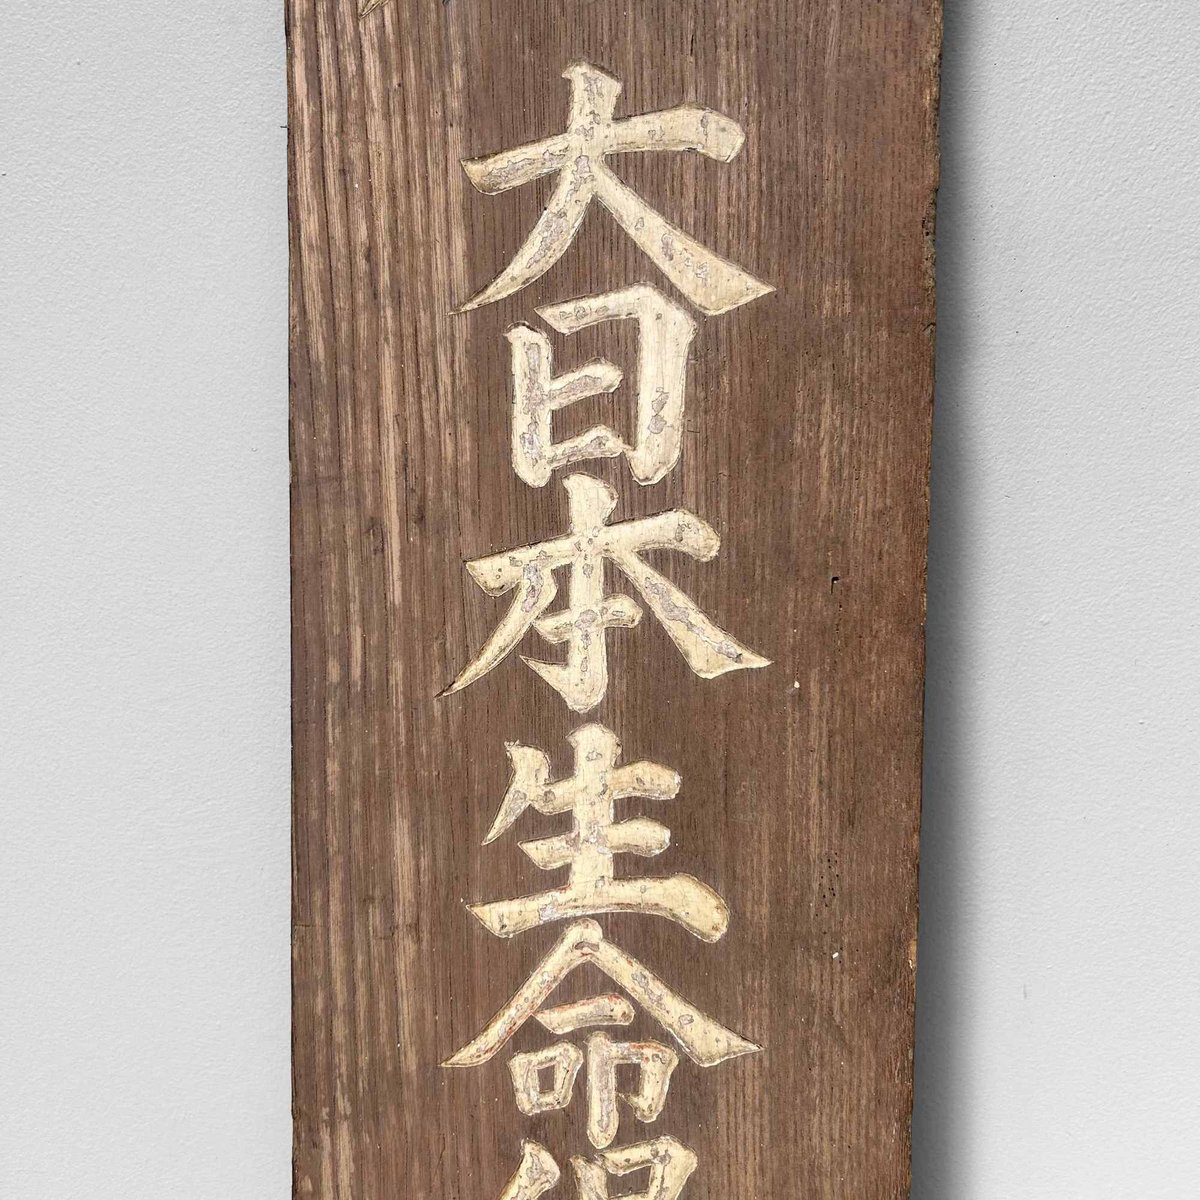 大日本生命保